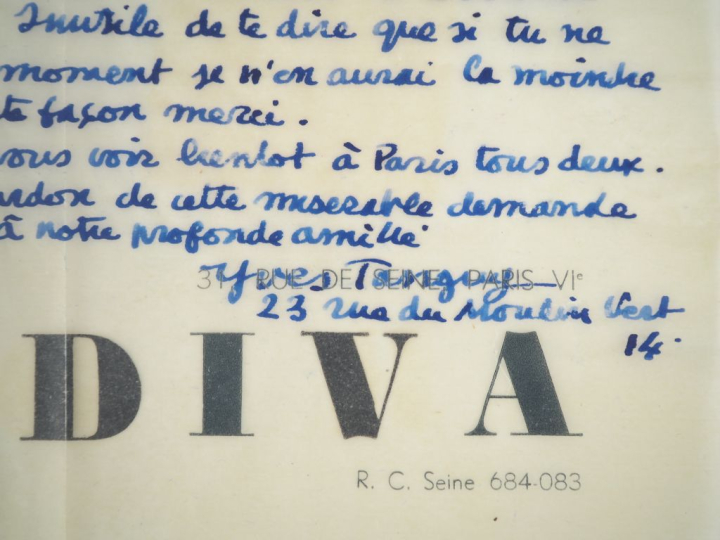 Inutile de te dire que si tu ne
moment je n'en aurai la moindre
te façon merci.
vous voir bientot à Paris tous deux.
ardon de cette miserable demande
à notre profonde amitié
31, RUE DE SEINE, PARIS VIe
Yves Tanguy
23 rue du Moulin Vert
14.
DIVA
R. C. Seine 684-083